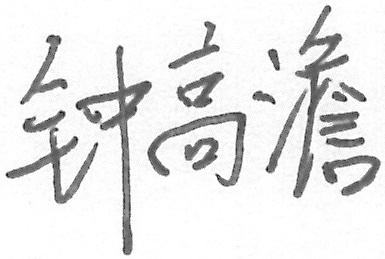 钟高澹